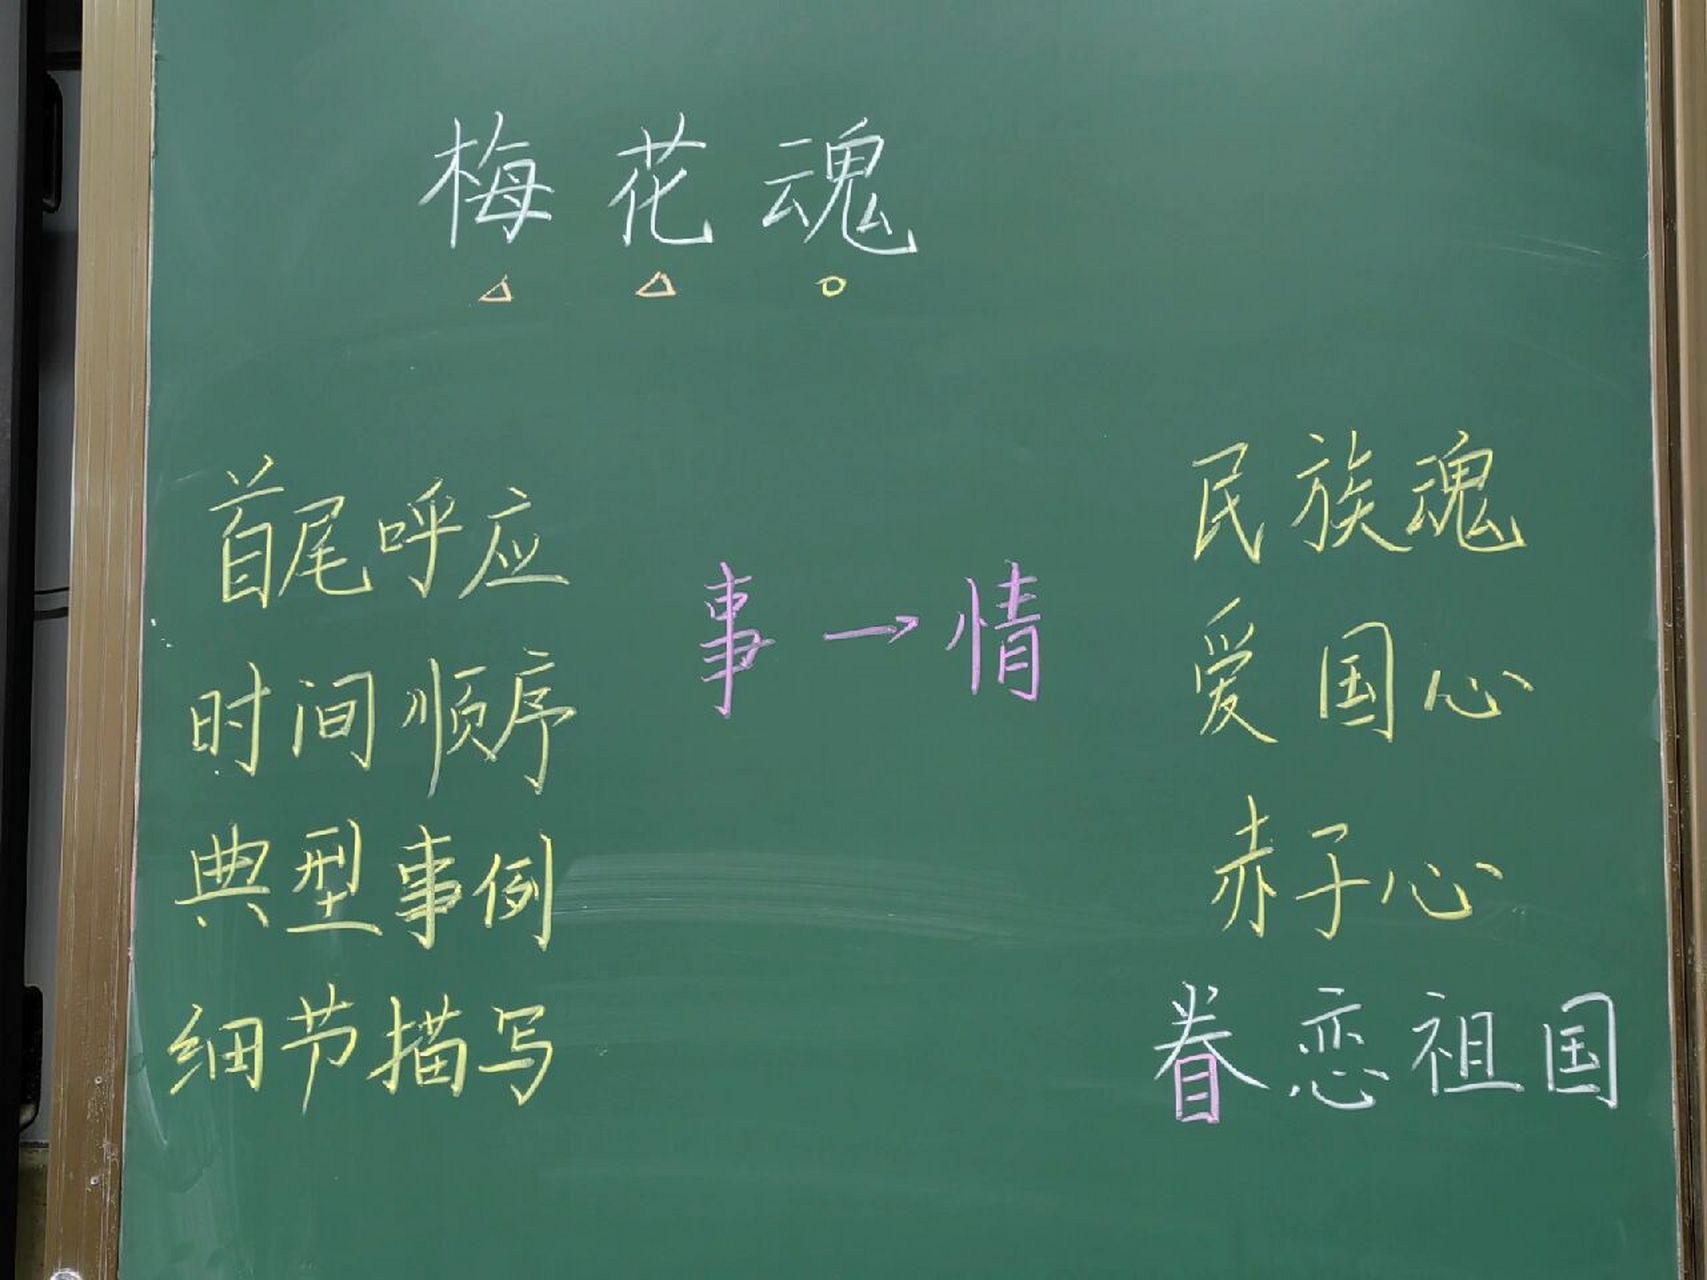 梅花魂
首尾呼应
时间顺序
典型事例
细节描写
事→情
民族魂
爱国心
赤子心
眷恋祖国